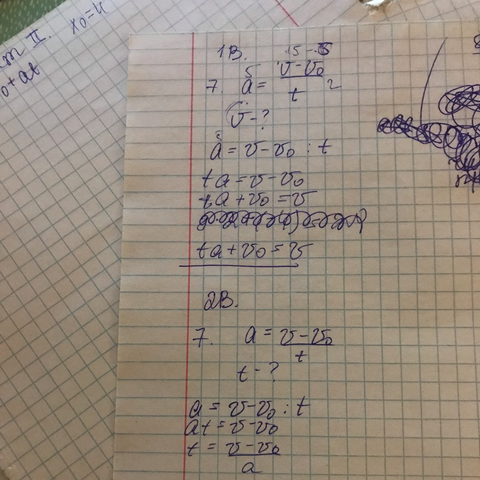 т II. x0=4
0+at
1В. 15-5
7. a = v-v0 / t
v-?
a = v-v0 : t
ta = v-v0
ta+v0 = v
ta+v0 = v
2В.
7. a = v-v0 / t
t-?
a = v-v0 : t
at = v-v0
t = v-v0 / a